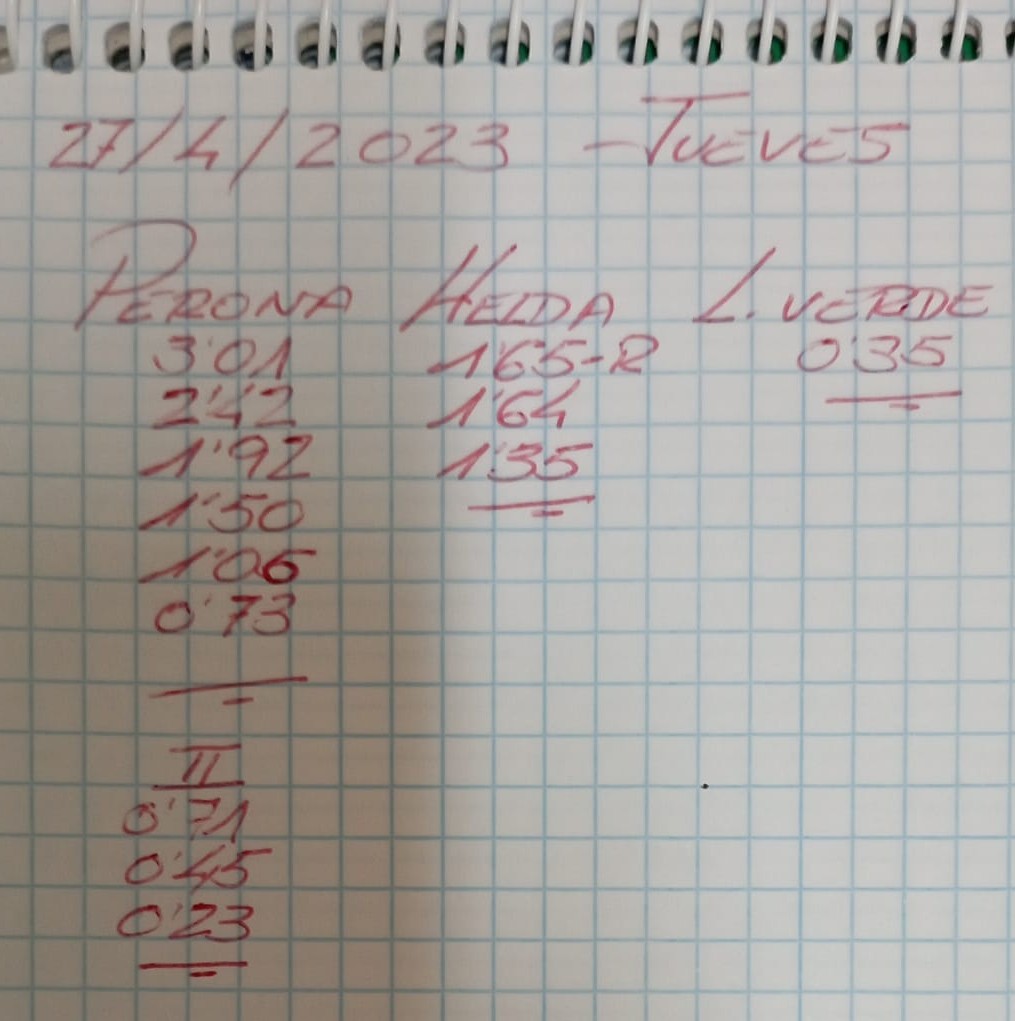 27/4/2023 - JUEVES
PERONA HELDA L. VERDE
3'01 1'65-R 0'35
2'42 1'64
1'92 1'35
1'50
1'06
0'73
II
0'71
0'45
0'23